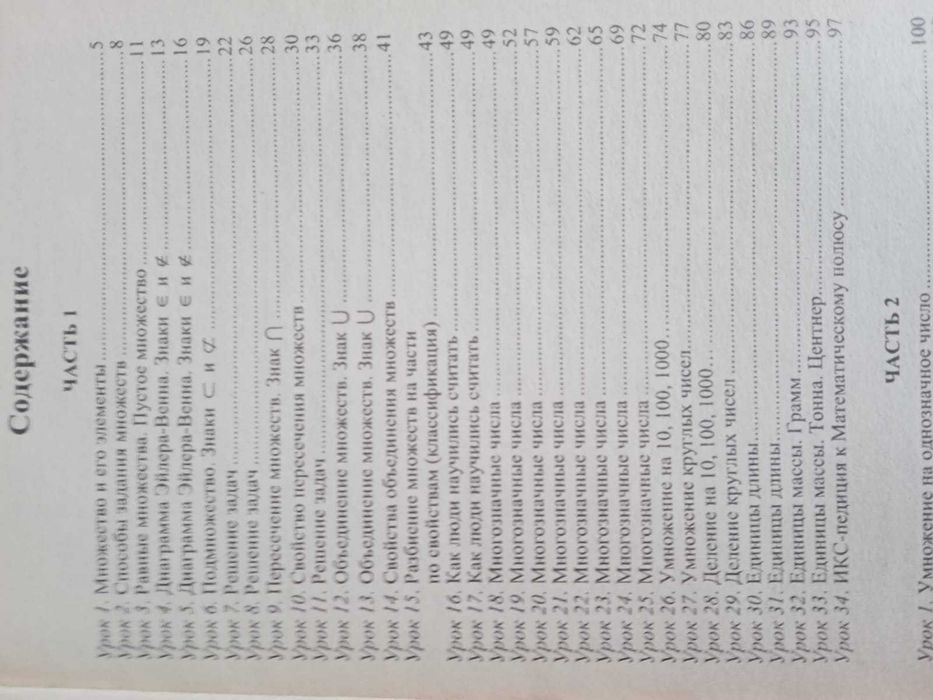 Содержание
ЧАСТЬ 1
Урок 1. Множество и его элементы 5
Урок 2. Способы задания множеств 8
Урок 3. Равные множества. Пустое множество 11
Урок 4. Диаграмма Эйлера-Венна. Знаки ∈ и ∉ 13
Урок 5. Диаграмма Эйлера-Венна. Знаки ∈ и ∉ 16
Урок 6. Подмножество. Знаки ⊂ и ⊄ 19
Урок 7. Решение задач 22
Урок 8. Решение задач 26
Урок 9. Пересечение множеств. Знак ∩ 28
Урок 10. Свойство пересечения множеств 30
Урок 11. Решение задач 33
Урок 12. Объединение множеств. Знак ∪ 36
Урок 13. Объединение множеств. Знак ∪ 38
Урок 14. Свойства объединения множеств 41
Урок 15. Разбиение множеств на части
по свойствам (классификация) 43
Урок 16. Как люди научились считать 49
Урок 17. Как люди научились считать 49
Урок 18. Многозначные числа 49
Урок 19. Многозначные числа 52
Урок 20. Многозначные числа 57
Урок 21. Многозначные числа 59
Урок 22. Многозначные числа 62
Урок 23. Многозначные числа 65
Урок 24. Многозначные числа 69
Урок 25. Многозначные числа 72
Урок 26. Умножение на 10, 100, 1000… 74
Урок 27. Умножение круглых чисел 77
Урок 28. Деление на 10, 100, 1000… 80
Урок 29. Деление круглых чисел 83
Урок 30. Единицы длины 86
Урок 31. Единицы длины 89
Урок 32. Единицы массы. Грамм 93
Урок 33. Единицы массы. Тонна. Центнер 95
Урок 34. ИКС-педиция к Математическому полюсу 97
ЧАСТЬ 2
Урок 1. Умножение на однозначное число 100